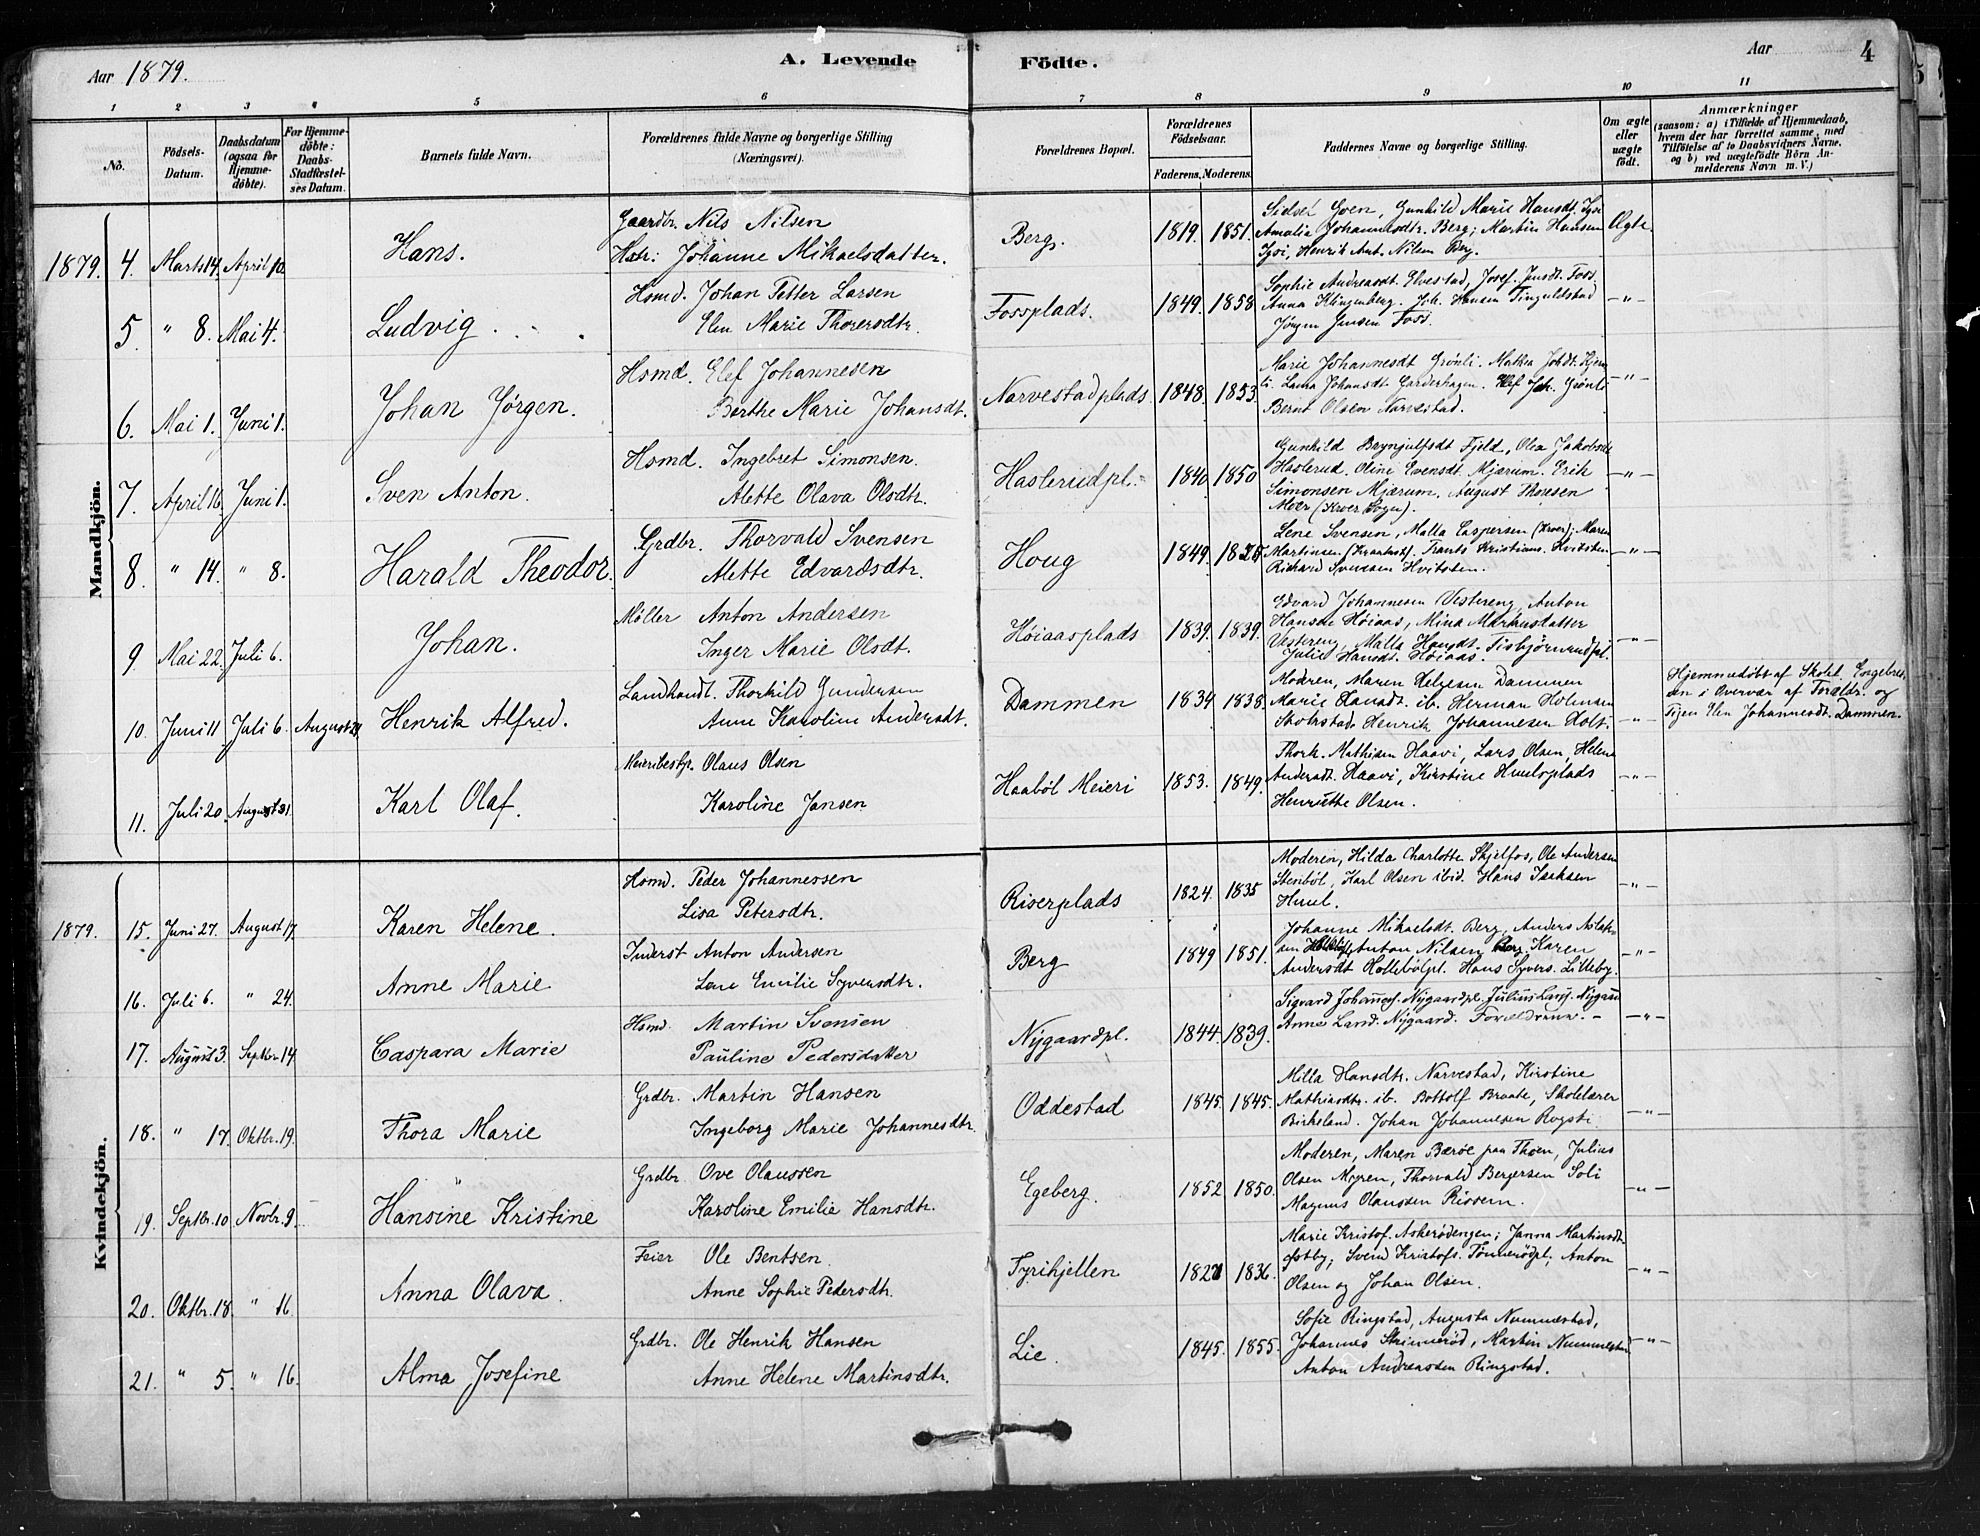 Aar 1879.
A. Levende Födte.
Aar
4
1 2 3 4 5 6 7 8 9 10 11
No.
Födsels-Datum.
Daabsdatum (ogsaa for Hjemme-döbte).
For Hjemme-döbte: Daabs-Stadfæstel-ses Datum.
Barnets fulde Navn.
Forældrenes fulde Navne og borgerlige Stilling (Næringsvei).
Forældrenes Bopæl.
Forældrenes Födselsaar.
Faderens. Moderens.
Faddernes Navne og borgerlige Stilling.
Om ægte eller uægte födt.
Anmærkninger (saasom: a) i Tilfælde af Hjemmedaab, hvem der har forrettet samme, med Tilföielse af to Daabsvidners Navne, og b) ved uægtefödte Börn An-melderens Navn m. V.)
Mandkjön.
1879. 4. Marts 14. April 10. Hans.
Gaardbr. Nils Nilsen
Hstr: Johanne Mikaelsdatter.
Berg. 1819. 1851.
Sidsel Even, Gunhild Marie Hansdt. Tysi
Amalia Johannesdtr. Berg; Martin Hansen
Tysi, Henrik Ant. Nilsen Berg.
Ægte.
5. " 8. Mai 4. Ludvig
Hsmd. Johan Petter Larsen
Elen Marie Thorersdtr.
Fossplads. 1849. 1858
Sophie Andreasdt. Elvestad, Josef. Jensdt. Foss.
Anna Klingenberg. Joh. Hansen Tinguldstad
Jørgen Jensen Foss.
—"—
6. Mai 1. Juni 1. Johan Jørgen.
Hsmd. Elef Johannesen
Berthe Marie Johansdt.
Narvestadplads 1848. 1853.
Marie Johannesdt Grønli. Mathea Johdt. Hjem-
li. Laura Johansdt Garderhagen. Elef Joh. Grønli
Bernt Olsen Narvestad.
—"—
7. April 16. Juni 1. Sven Anton.
Hsmd. Ingebret Simonsen.
Alette Olava Olsdtr.
Haslerudpl. 1840 1850
Gunhild Brynjulfsdt Fjeld, Olea Jakobsdt
Haslerud. Oline Evensdt. Mjærum. Erik
Simonsen Mjærum. August Thoresen
Moer (Kroer Sogn).
—"—
8. " 14. " 8. Harald Theodor.
Grdbr. Thorvald Svensen
Alette Edvardsdtr.
Houg 1849.
Lene Svensen, Malla Caspersen (Kroer); Maren
Martinsen (Kraakst). Frants Kristians. Hvitsten
Richard Svensen Hvitsten.
—"—
9. Mai 22. Juli 6. Johan.
Møller Anton Andersen
Inger Marie Olsdt.
Høiaasplads 1839. 1839.
Edvard Johannesen Vestereng, Anton
Hansen Høiaas, Mina Markusdatter
Vestereng, Malla Hansdt. Fisbjørnrudpl.
Julie Hansdt. Høiaas.
—"—
10. Juni 11 Juli 6. August 31. Henrik Alfred.
Landhandl. Thorkild Gundersen
Anne Karoline Andersdt.
Dammen 1834 1838.
Moderen, Maren Helgesen Dammen
Marie Hansdt. ib. Herman Holmsen
Skokstad. Henrik Johannesen Holt.
—"—
Hjemmedöbt af Skolel. Engebret-
sen i Overvær af Forældr. og
Pigen Elen Johannesdt. Dammen.
11. Juli 20. August 31. Karl Olaf.
Meieribestyr. Olaus Olsen
Karoline Jansen
Haaböl Meieri 1853. 1849.
Thork. Mathisen Haavi, Lars Olsen, Helene
Andersdt. Haavi, Kirstine Huulsplads
Henriette Olsen.
—"—
Kvindekjön.
1879. 15. Juni 27. August 17. Karen Helene.
Hsmd. Peder Johannessen
Lisa Petersdtr.
Riserplads 1824. 1835
Moderen, Hilda Charlotte Skjelfos, Ole Andersen
Stenböl, Karl Olsen ibid. Hans Isaksen
Huul.
—"—
16. Juli 6. " 24. Anne Marie
Inderst Anton Andersen
Lene Emilie Syversdtr.
Berg 1849 1851.
Johanne Mikaelsdt. Berg, Anders Aslak-
sen Anton Nilsen Berg Karen
Andersdt Holleböl pl. Hans Syvers. Lilleby.
—"—
17. August 3. Septbr. 14. Caspara Marie
Hsmd. Martin Svensen
Pauline Pedersdatter
Nygaardpl. 1844. 1839.
Sigvard Johannes. Nygaardpl. Julius Lars. Nygaard
Anne Land. Nygaard. Forældrene. —
—"—
18. " 17. Oktbr. 19. Thora Marie
Grdbr. Martin Hansen
Ingeborg Marie Johannesdtr.
Oddestad 1845. 1845.
Milla Hansdtr. Narvestad, Kirstine
Mathiasdtr. ib. Bottolf Braate, Skolelærer
Birkeland. Johan Johannesen Rogsti
—"—
19. Septbr. 10 Novbr. 9. Hansine Kristine
Grdbr. Ove Olaussen
Karoline Emilie Hansdtr.
Egeberg. 1852 1850.
Moderen, Maren Bærøe paa Thoen, Julius
Olsen Myren, Thorvald Bergersen Soli
Magnus Olaussen Rissem.
—"—
20. Oktbr. 18. " 16. Anna Olava
Feier Ole Bentsen.
Anne Sophie Pedersdtr.
Fyrihjellen 1836.
Marie Kristof. Askerödengen; Janna Martinsdt.
Østby; Svend Kristofs. Tönnerödpl; Anton
Olsen og Johan Olsen.
—"—
21. " 5. " 16. Alma Josefine
Grdbr. Ole Henrik Hansen
Anne Helene Martinsdtr.
Lie. 1845. 1855.
Sofie Ringstad, Augusta Nummestad,
Johannes Skinneröd, Martin Nummestad
Anton Andreassen Ringstad.
—"—